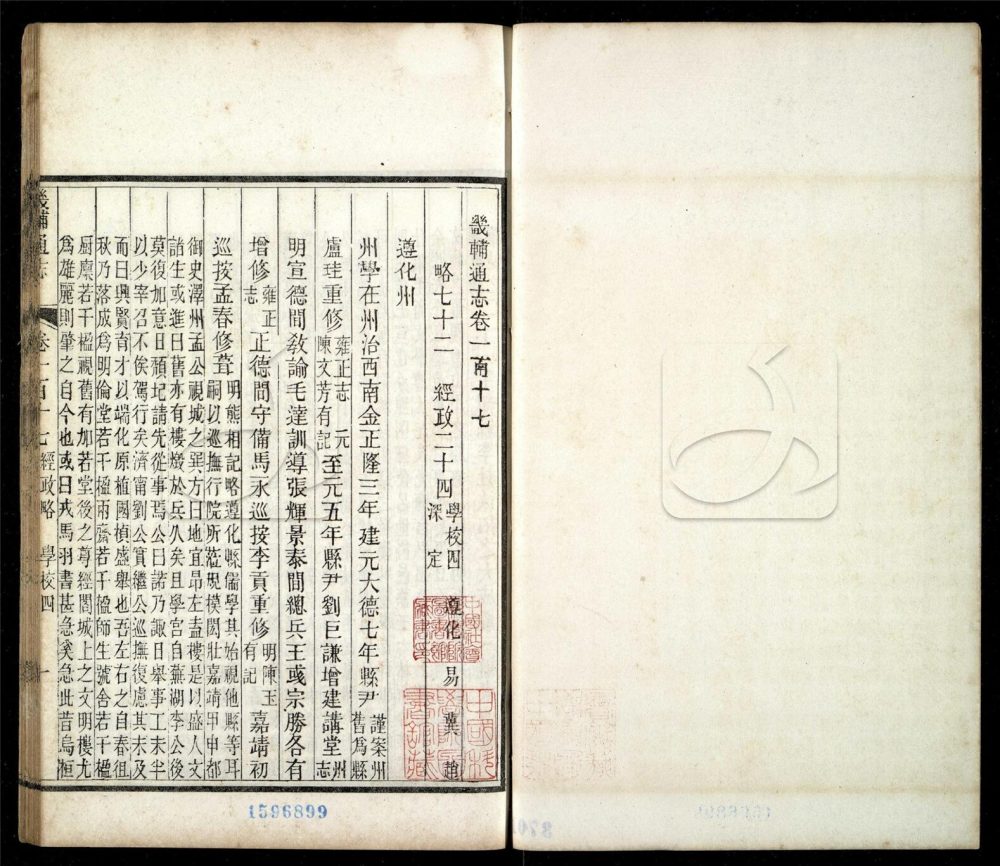 畿輔通志卷一百十七
略七十二 經政二十四 學校四 遵化 易 冀 趙
深 定
遵化州
州學在州治西南金正隆三年建元大德七年縣尹 謹案州
舊爲縣
盧珪重修 雍正志 元
陳文芳有記 至元五年縣尹劉巨謙增建講堂 州
志
明宣德間敎諭毛達訓導張輝景泰間總兵王彧宗勝各有
增修 雍正
志 正德間守備馬永巡按李貢重修 明陳玉
有記 嘉靖初
巡按孟春修葺 明熊相記略遵化縣儒學其始視他縣等耳
嗣以巡撫行院所蒞規模閎壯嘉靖甲申都
御史澤州孟公視城之巽方曰地宜昂左盍樓是以盛人文
諸生或進曰舊亦有樓燬於兵久矣且學宮自蕪湖李公後
莫復加意日頹圮請先從事焉公曰諾乃諏日舉事工未半
以少宰召不俟駕行矣濟甯劉公實繼公巡撫復慮其未及
而曰興賢育才以端化原植國楨盛舉也吾左右之自春徂
秋乃落成爲明倫堂若干楹兩齋若干楹師生號舍若干楹
厨廪若干楹視舊有加若堂後之尊經閣城上之文明樓尤
爲雄麗則肇之自今也或曰戎馬羽書甚急奚急此昔烏桓
畿輔通志 卷一百十七 經政略 學校四 一
1596899